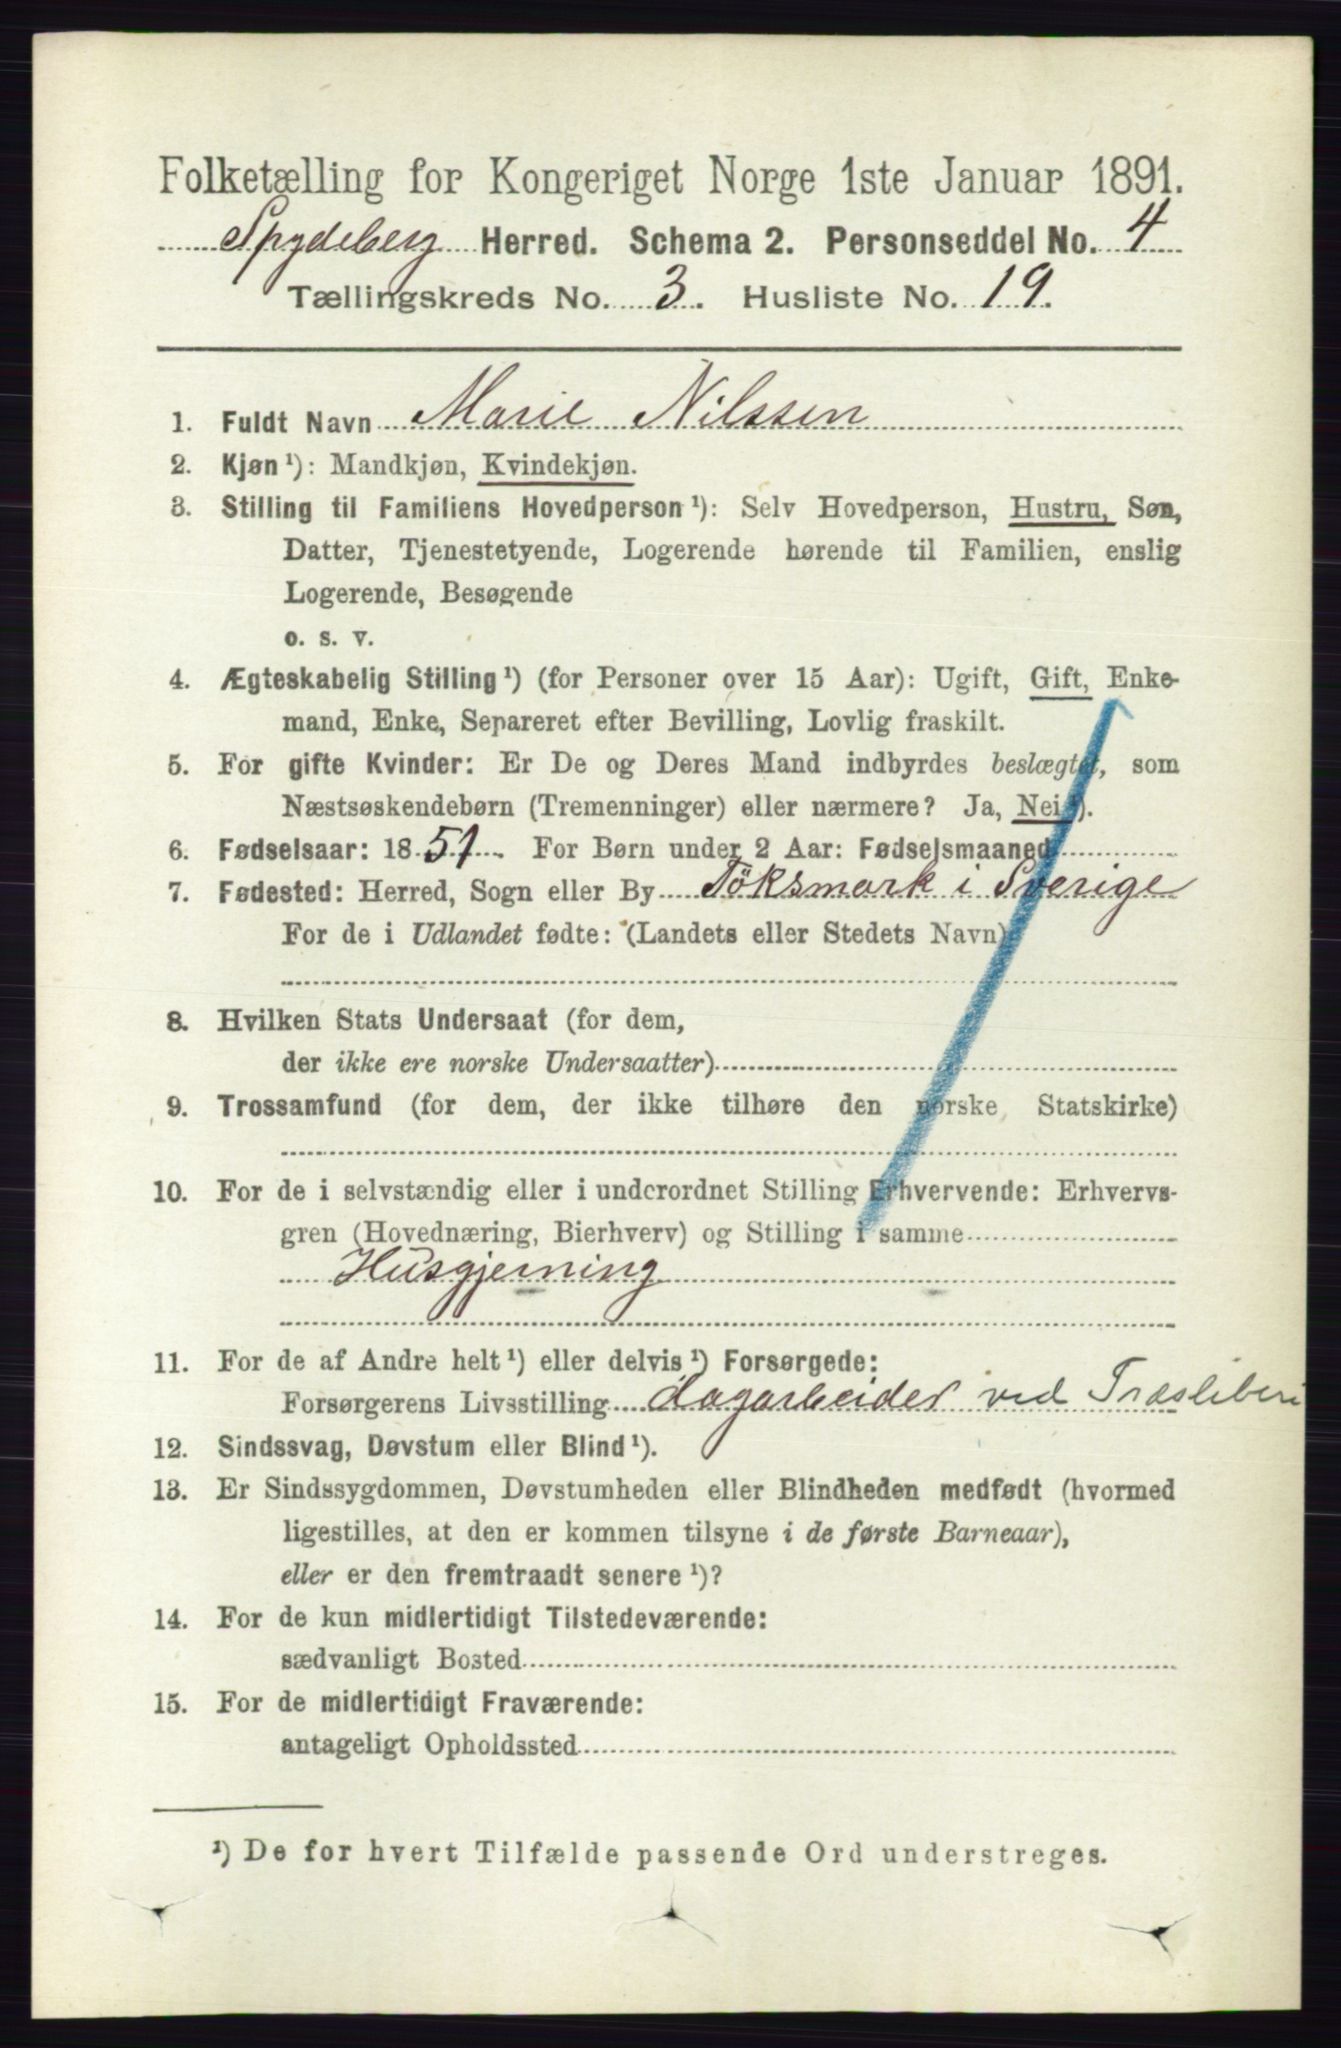 Folketælling for Kongeriget Norge 1ste Januar 1891.
Spydeberg Herred. Schema 2. Personseddel No. 4
Tællingskreds No. 3. Husliste No. 19.
1. Fuldt Navn Marie Nilssen
2. Kjøn ¹): Mandkjøn, Kvindekjøn.
3. Stilling til Familiens Hovedperson ¹): Selv Hovedperson, Hustru, Søn,
Datter, Tjenestetyende, Logerende hørende til Familien, enslig
Logerende, Besøgende
o. s. v.
4. Ægteskabelig Stilling ¹) (for Personer over 15 Aar): Ugift, Gift, Enke-
mand, Enke, Separeret efter Bevilling, Lovlig fraskilt.
5. For gifte Kvinder: Er De og Deres Mand indbyrdes beslægtet, som
Næstsøskendebørn (Tremenninger) eller nærmere? Ja, Nei ¹).
6. Fødselsaar: 1851. For Børn under 2 Aar: Fødselsmaaned
7. Fødested: Herred, Sogn eller By Töksmark i Sverige
For de i Udlandet fødte: (Landets eller Stedets Navn)
8. Hvilken Stats Undersaat (for dem,
der ikke ere norske Undersaatter)
9. Trossamfund (for dem, der ikke tilhøre den norske Statskirke)
10. For de i selvstændig eller i underordnet Stilling Erhvervende: Erhvervs-
gren (Hovednæring, Bierhverv) og Stilling i samme
Husgjerning
11. For de af Andre helt ¹) eller delvis ¹) Forsørgede:
Forsørgerens Livsstilling dagarbeider ved Træsliberi
12. Sindssvag, Døvstum eller Blind ¹).
13. Er Sindssygdommen, Døvstumheden eller Blindheden medfødt (hvormed
ligestilles, at den er kommen tilsyne i de første Barneaar),
eller er den fremtraadt senere ¹)?
14. For de kun midlertidigt Tilstedeværende:
sædvanligt Bosted
15. For de midlertidigt Fraværende:
antageligt Opholdssted
¹) De for hvert Tilfælde passende Ord understreges.